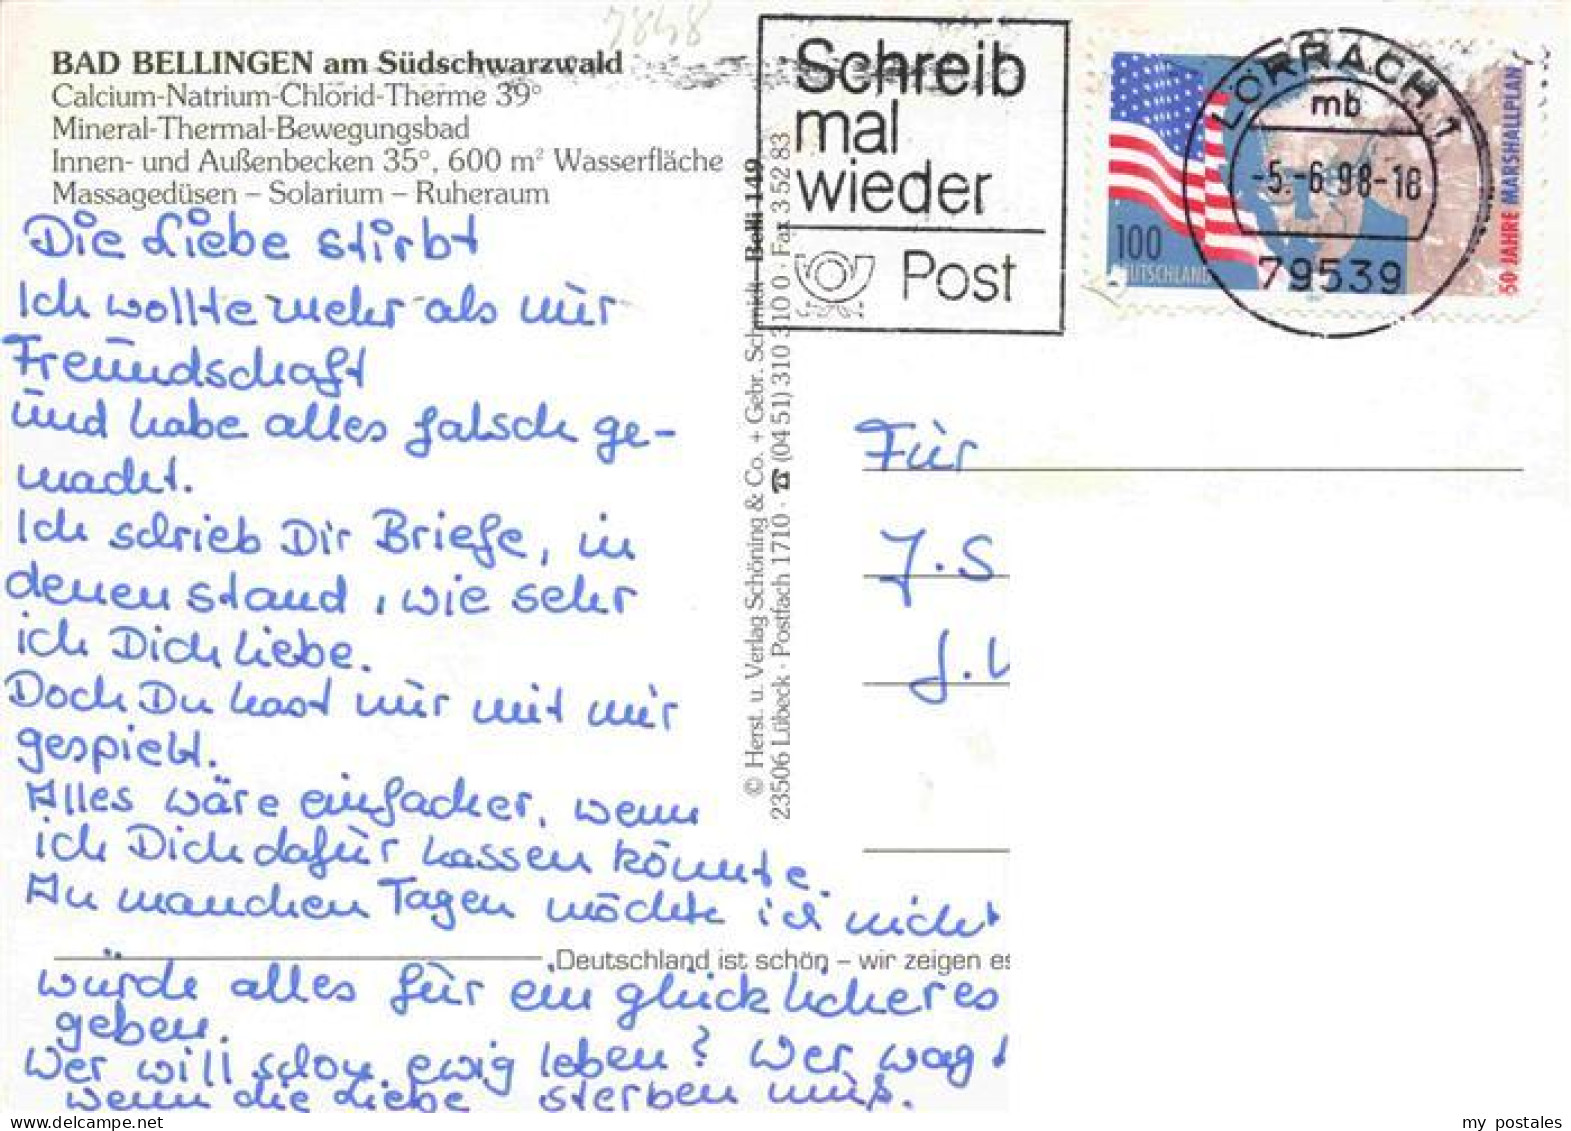 7848
BAD BELLINGEN am Südschwarzwald
Calcium-Natrium-Chlorid-Therme 39°
Mineral-Thermal-Bewegungsbad
Innen- und Außenbecken 35°, 600 m² Wasserfläche
Massagedüsen – Solarium – Ruheraum
Die Liebe stirbt
Ich wollte mehr als nur
Freundschaft
und habe alles falsch ge-
macht.
Ich schrieb Dir Briefe, in
denen stand, wie sehr
ich Dich liebe.
Doch Du hast nur mit mir
gespielt.
Alles wäre einfacher, wenn
ich Dich dafür hassen könnte.
An manchen Tagen möchte ich nicht
„Deutschland ist schön – wir zeigen es
würde alles für ein glücklicheres
geben.
Wer will schon ewig leben? Wer wagt
wenn die Liebe sterben muß.
© Herst. u. Verlag Schöning & Co. + Gebr. Schmidt Belli 149
23506 Lübeck · Postfach 1710 · ☎ (04 51) 310 310 0 · Fax 3 52 83
Schreib
mal
wieder
Post
LÖRRACH 1
mb
-5.-6.98-18
79539
100
DEUTSCHLAND
50 JAHRE MARSHALLPLAN
Für
J.S
my_postales